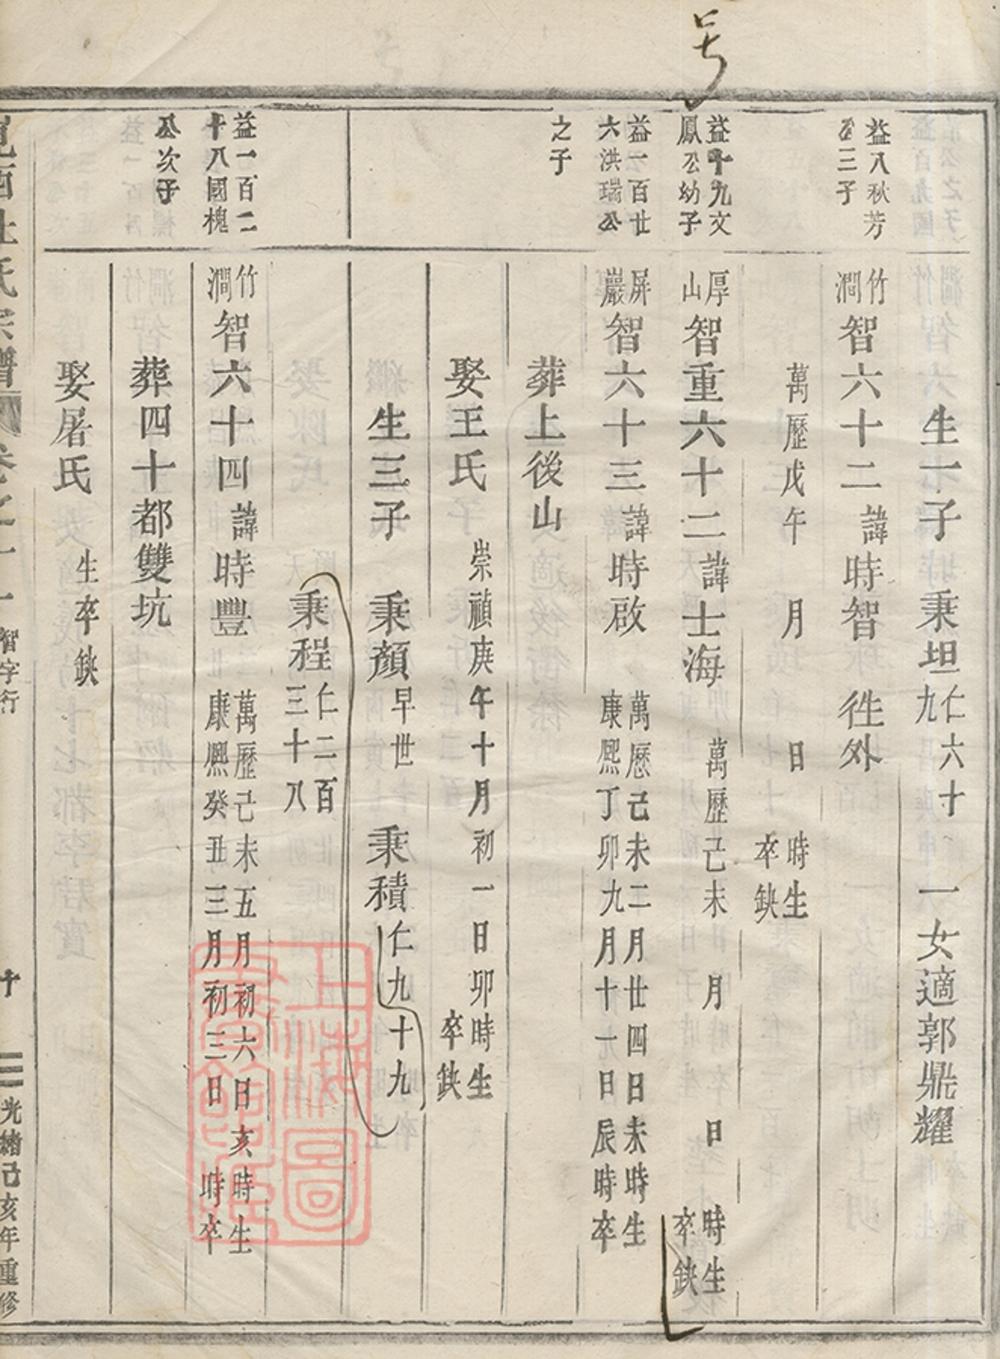 号
生一子 秉坦 仁六十九 一女適郭鼎耀
益八秋芳公三子
竹澗 智六十二 諱 時智 徃外
萬歷戊午 月 日 時生 卒缺
益十九文鳳公幼子
厚山 智重六十二 諱 士海 萬歷己未 月 日 時生 卒缺
益一百廿六洪瑞公之子
屏巖 智六十三 諱 時啟 萬歷己未二月廿四日未時生 康熙丁卯九月十一日辰時卒
葬上後山
娶王氏 崇禎庚午十月初一日卯時生 卒缺
生三子 秉顏 早世 秉積 仁九十九
秉程 仁二百三十八
益一百二十八國槐公次子
竹澗 智六十四 諱 時豐 萬歷己未五月初六日亥時生 康熙癸丑三月初三日 時卒
葬四十都雙坑
娶屠氏 生卒缺
杜氏宗譜 卷之十一 智字行 十 光緒己亥年重修
上海圖書館藏